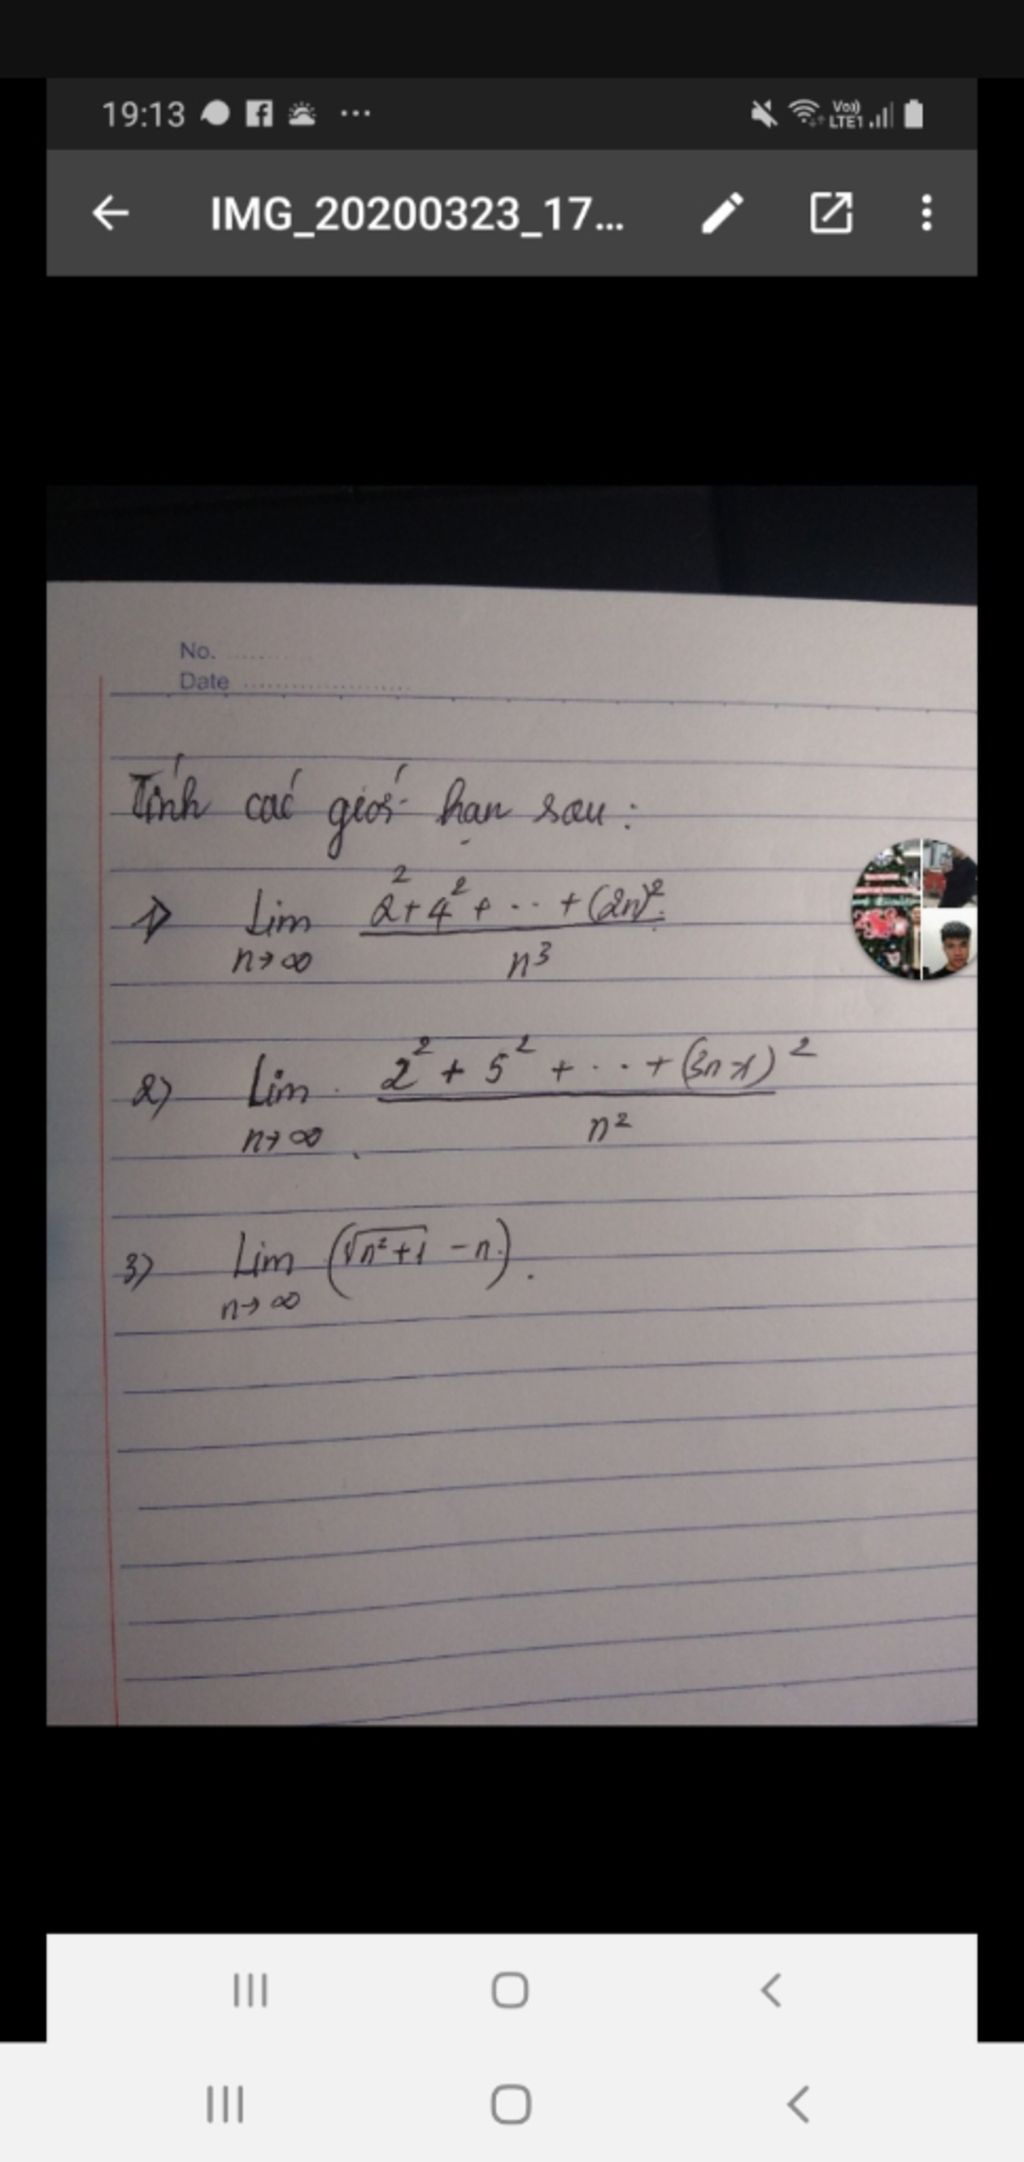 19:13
Vo)) LTE1
IMG_20200323_17...
No. ............
Date ........................
Tính các giới hạn sau:
1) Lim n→∞ (2² + 4² + ... + (2n)²) / n³
2) Lim n→∞ (2² + 5² + ... + (3n-1)²) / n²
3) Lim n→∞ (√n²+1 - n).